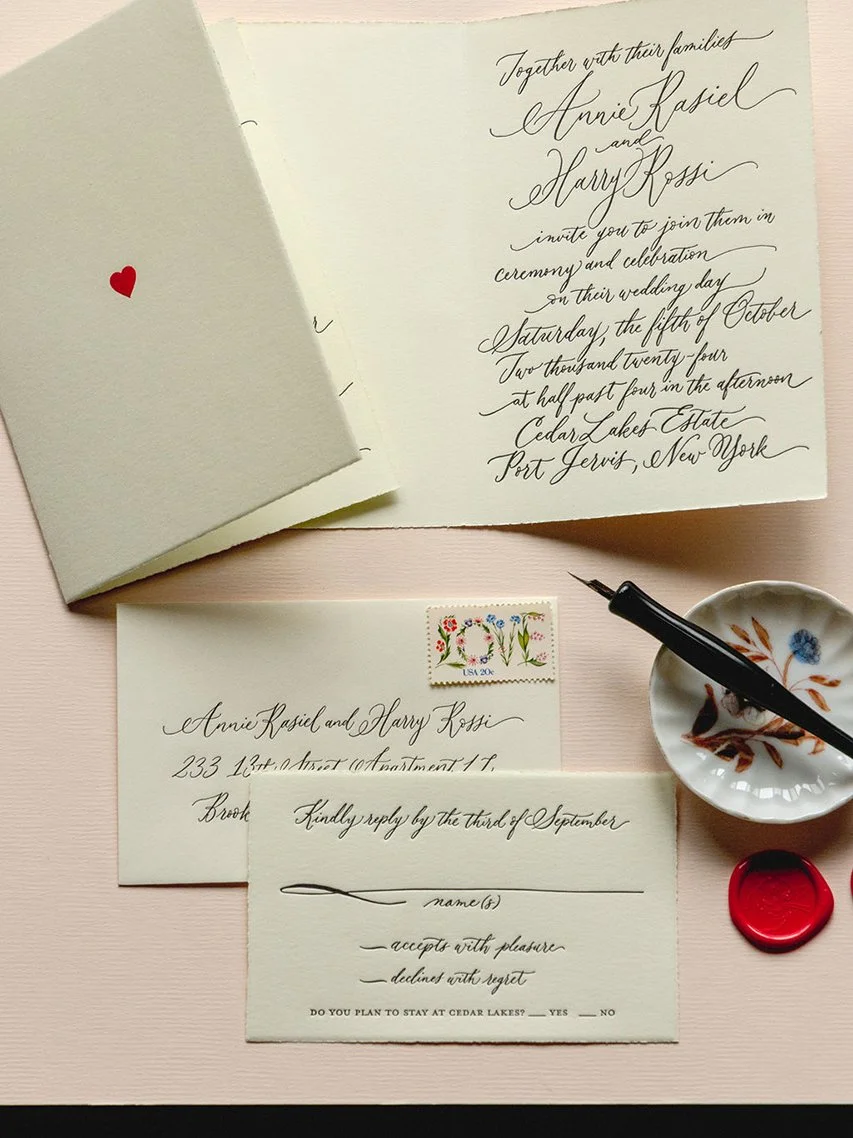 Together with their families
Annie Rasiel
and
Harry Rossi
invite you to join them in
ceremony and celebration
on their wedding day
Saturday, the fifth of October
Two thousand twenty-four
at half past four in the afternoon
Cedar Lakes Estate
Port Jervis, New York
LOVE
USA 20c
Annie Rasiel and Harry Rossi
233 13th Street Apartment
Kindly reply by the third of September
name(s)
accepts with pleasure
declines with regret
DO YOU PLAN TO STAY AT CEDAR LAKES? ___ YES ___ NO